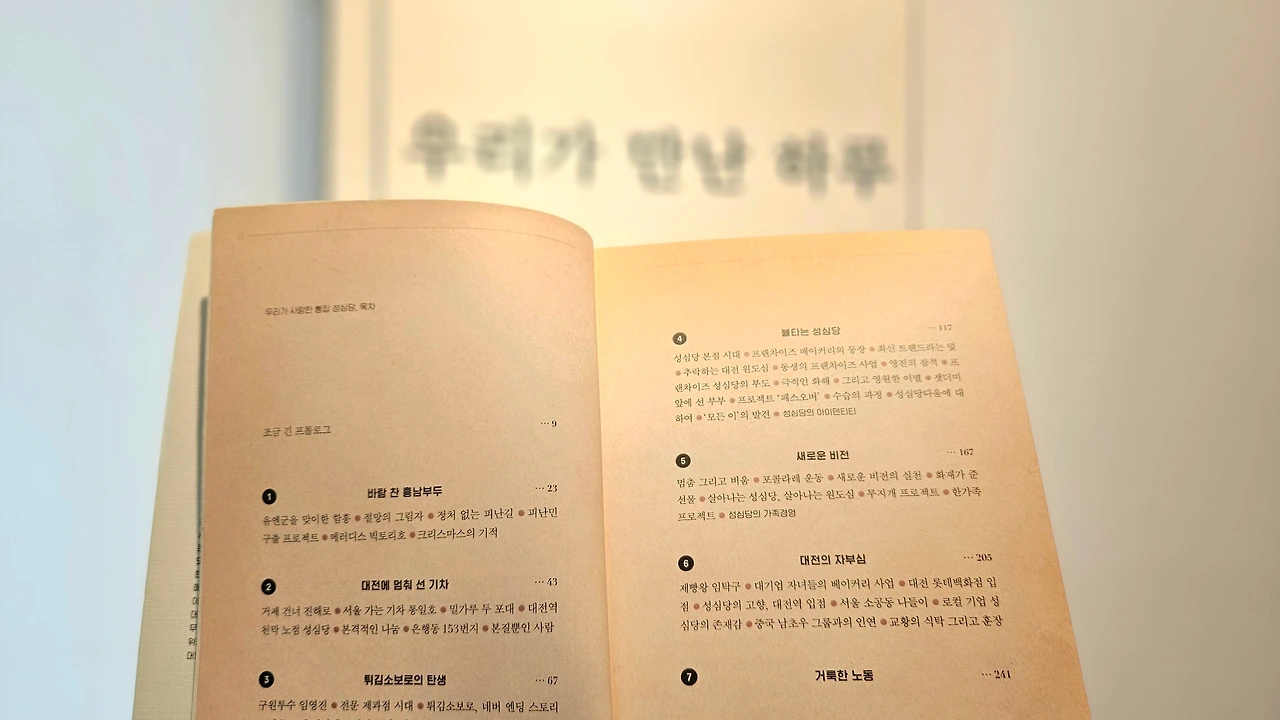 우리가 만난 하루
우리가 사랑한 빵집 성심당, 목차
조금 긴 프롤로그 … 9
1 바람 찬 흥남부두 … 23
유엔군을 맞이한 함흥 ● 절망의 그림자 ● 정처 없는 피난길 ● 피난민
구출 프로젝트 ● 메러디스 빅토리호 ● 크리스마스의 기적
2 대전에 멈춰 선 기차 … 43
거제 건너 진해로 ● 서울 가는 기차 통일호 ● 밀가루 두 포대 ● 대전역
천막 노점 성심당 ● 본격적인 나눔 ● 은행동 153번지 ● 본질뿐인 사람
3 튀김소보로의 탄생 … 67
구원투수 임영진 ● 전문 제과점 시대 ● 튀김소보로, 네버 엔딩 스토리
4 불타는 성심당 … 117
성심당 본점 시대 ● 프랜차이즈 베이커리의 등장 ● 최신 트렌드라는 덫
● 추락하는 대전 원도심 ● 동생의 프랜차이즈 사업 ● 영진의 잠적 ● 프
랜차이즈 성심당의 부도 ● 극적인 화해 ● 그리고 영원한 이별 ● 잿더미
앞에 선 부부 ● 프로젝트 ‘패스오버’ ● 수습의 과정 ● 성심당다움에 대
하여 ● ‘모든 이’의 발견 ● 성심당의 아이덴티티
5 새로운 비전 … 167
멈춤 그리고 비움 ● 포콜라레 운동 ● 새로운 비전의 실천 ● 화재가 준
선물 ● 살아나는 성심당, 살아나는 원도심 ● 무지개 프로젝트 ● 한가족
프로젝트 ● 성심당의 가족경영
6 대전의 자부심 … 205
제빵왕 임탁구 ● 대기업 자녀들의 베이커리 사업 ● 대전 롯데백화점 입
점 ● 성심당의 고향, 대전역 입점 ● 서울 소공동 나들이 ● 로컬 기업 성
심당의 존재감 ● 중국 남초우 그룹과의 인연 ● 교황의 식탁 그리고 훈장
7 거룩한 노동 … 241